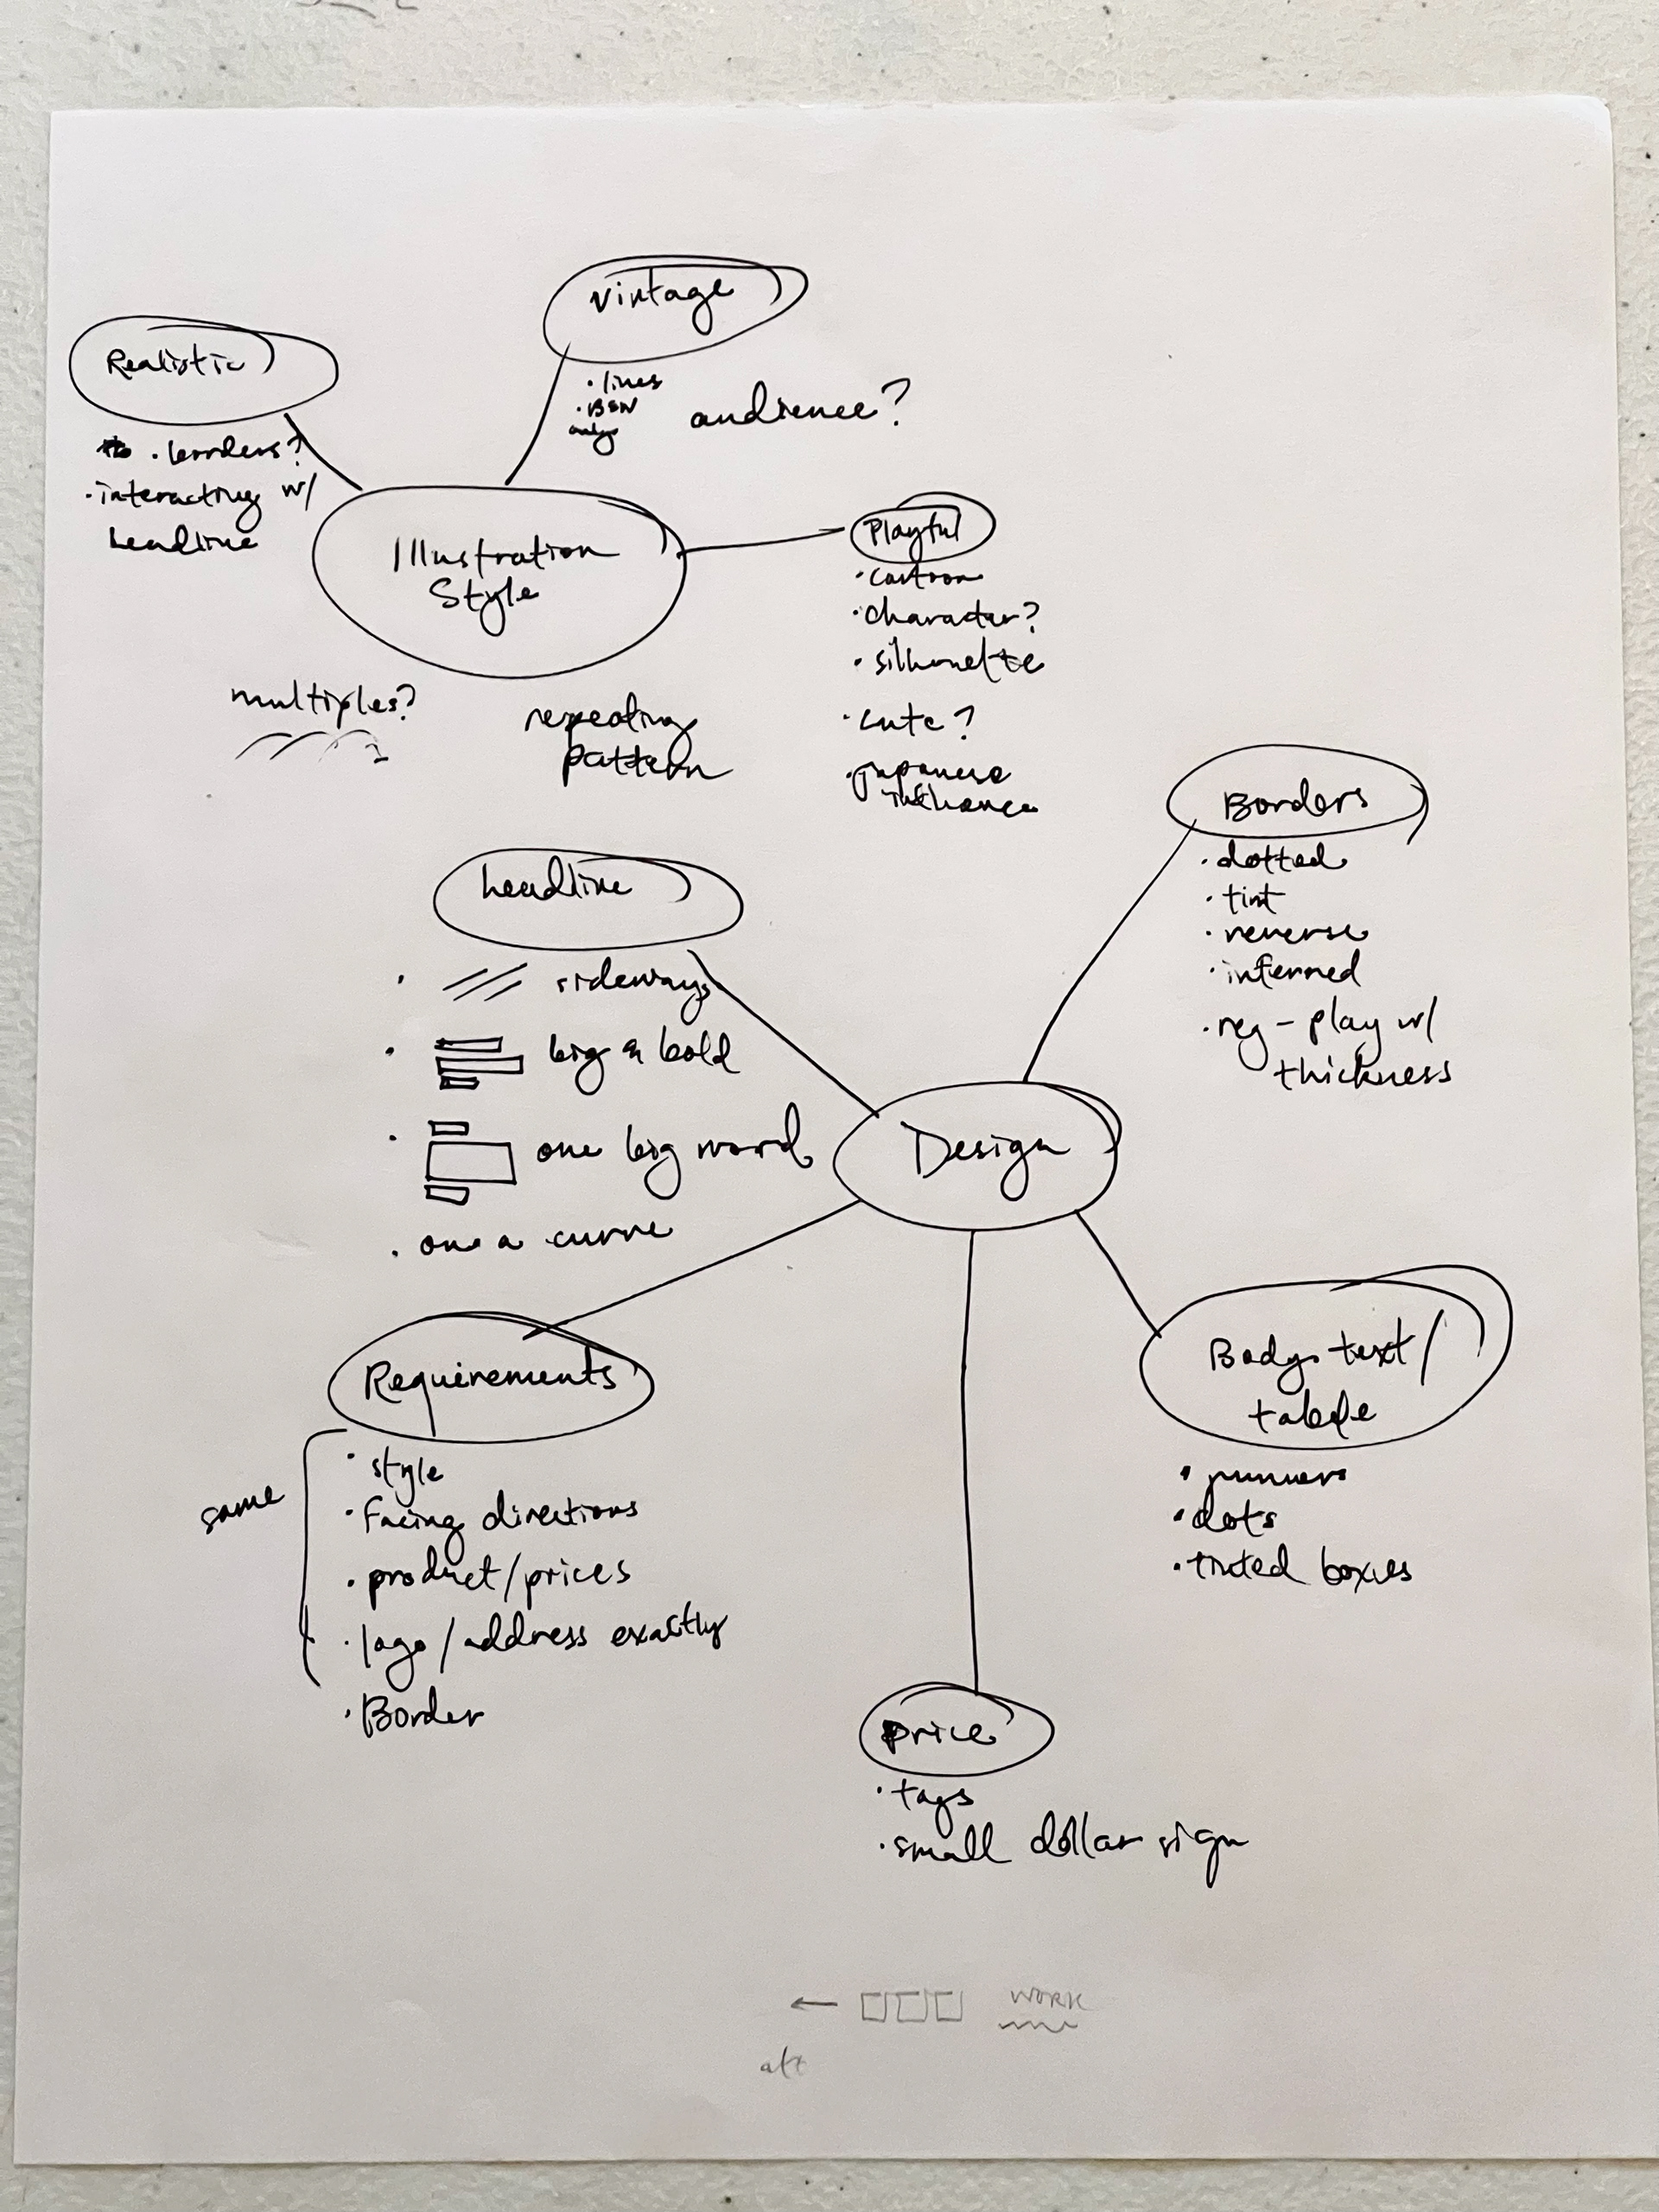 Vintage
· lines
· B&W
only
audience?
Realistic
· borders?
· interacting w/
headline
Illustration
Style
Playful
· cartoon
· character?
· silhouette
· cute?
· japanese
influence
multiples?
repeating
pattern
Borders
· dotted
· tint
· reverse
· inferred
· reg - play w/
thickness
headline
· sideways
· big & bold
· one big word
· one a curve
Design
Requirements
same
· style
· Facing directions
· product/prices
· logo/address exactly
· Border
Body text/
table
· dots
· tinted boxes
price
· tags
· small dollar sign
WORK